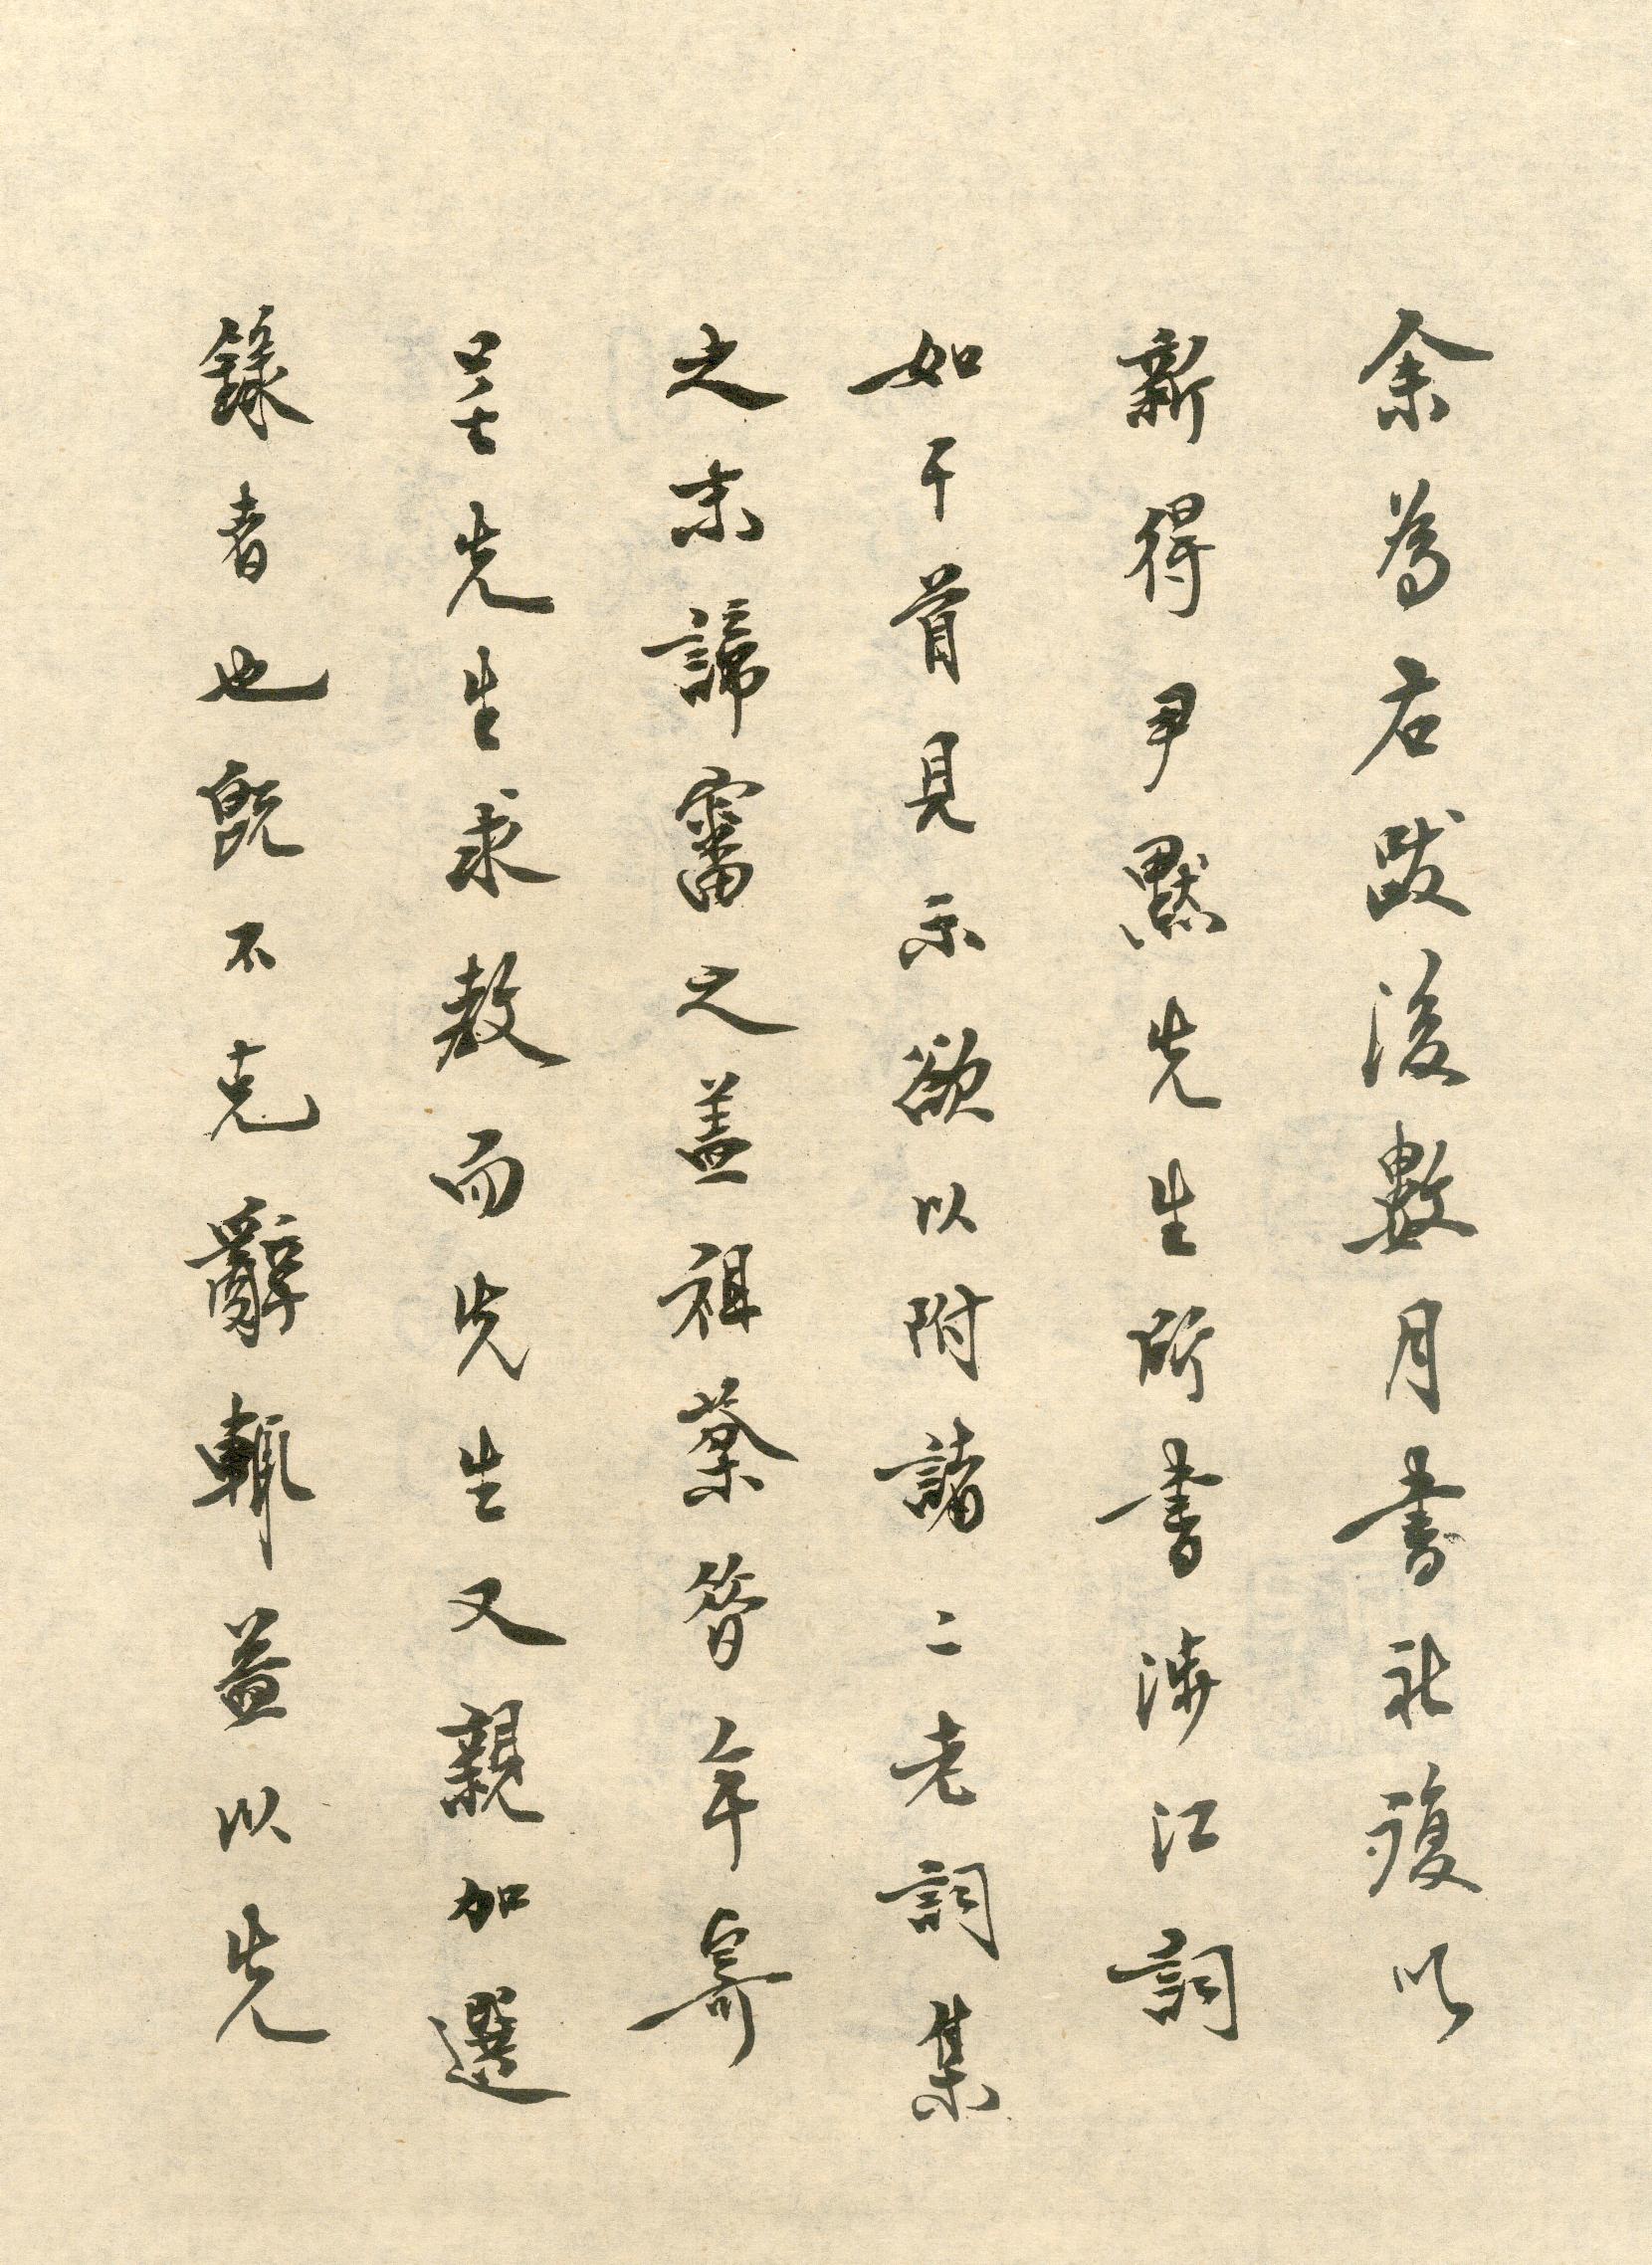 余為右跋後數月書社復以
新得尹默先生所書涉江詞
如干首見示欲以附諸二老詞集
之末諦審之蓋祖棻年寄
呈先生求教而先生又親加選
錄者也既不克辭輒益以先